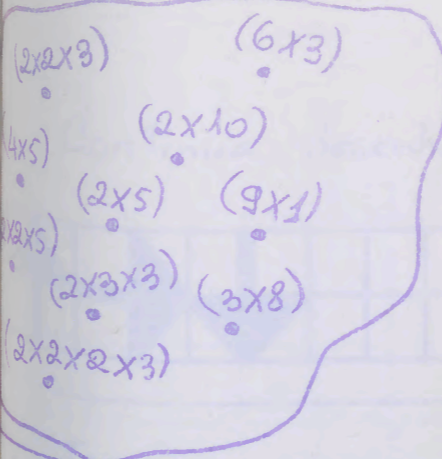 (2x2x3)
(6x3)
(4x5)
(2x10)
(2x5)
(9x1)
2x2x5)
(2x3x3)
(3x8)
(2x2x2x3)